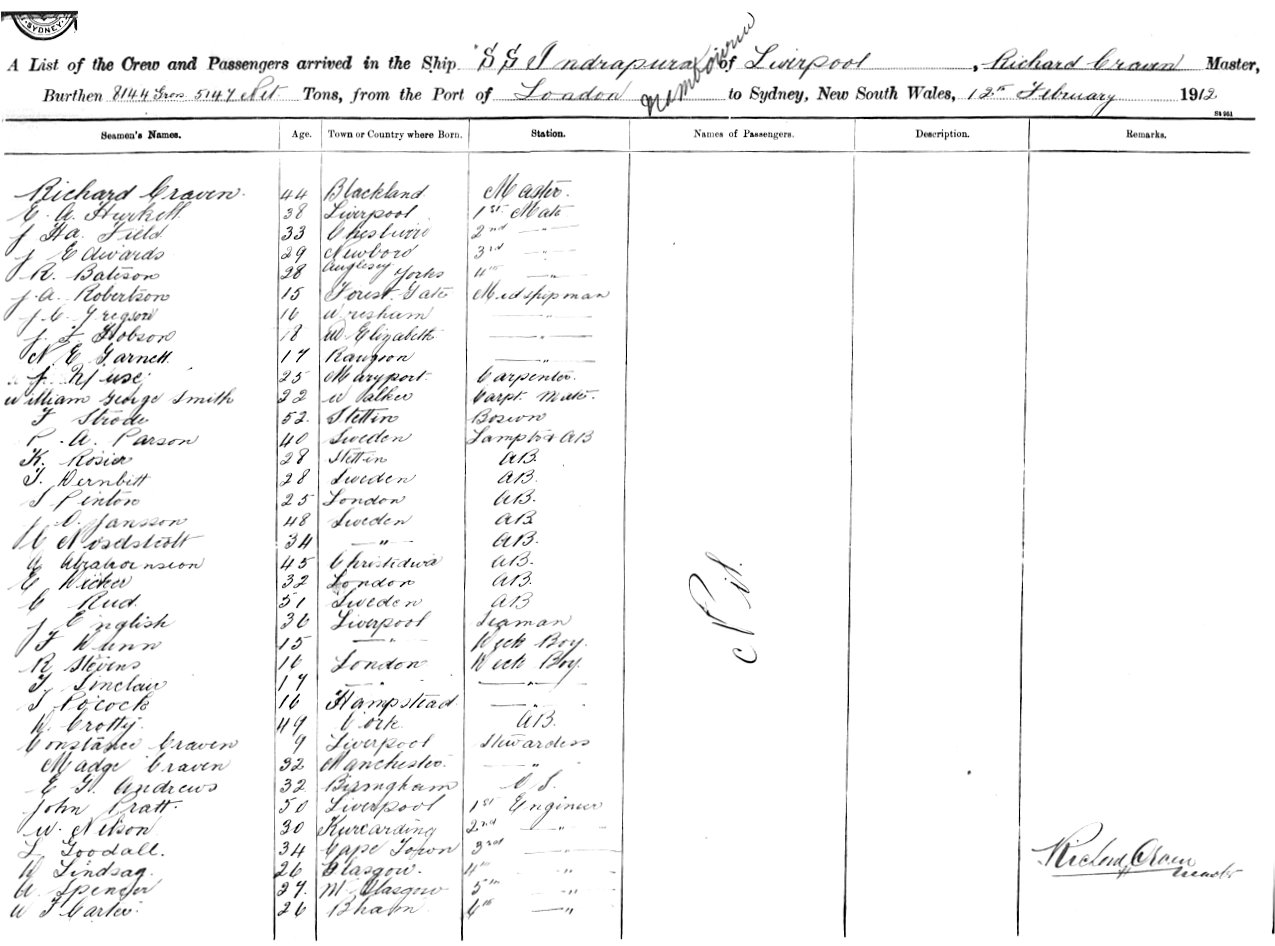 SYDNEY
A List of the Crew and Passengers arrived in the Ship S S Indrapura of Liverpool, Richard Craven Master,
Burthen 8144 Gros 5147 Net Tons, from the Port of London to Sydney, New South Wales, 12th February 1912
Seamen's Names. Age. Town or Country where Born. Station. Names of Passengers. Description. Remarks.
Richard Craven 44 Blackland Master.
E. A. Hurkett 38 Liverpool 1st Mate
J Ha. Field 33 2nd "
J Edwards 29 3rd "
R. Bateson 28 Anglesey Yorks 4th "
J. A. Robertson 15 Forest Gate Midshipman
J. C. Gregson 16 "
J. F Hobson 18 P Elizabeth "
N. E Garnett 17 "
J. 25 Maryport. Carpenter.
William George Smith 22 Walker Carpt. Mate.
F Strode 52. Stettin Bosun
P. A. Parson 40 Sweden AB
K. Rosier 28 Stettin AB.
28 Sweden AB.
S Pinton 25 London AB.
J. O. Jansson 48 Sweden AB
34 " AB.
45 AB.
E 32 London AB.
C Rud. 51 Sweden AB
J English 36 Liverpool Seaman
F Dunn 15 " Deck Boy.
R Stevens 16 London Deck Boy.
Sinclair 17 " "
S Pocock 16 Hampstead "
D. Crotty. 49 Cork AB.
Constance Craven 9 Liverpool Stewardess
Madge Craven 32 Manchester. "
E G. Andrews 32 Birmgham
John Pratt. 50 Liverpool 1st Engineer
W. Nelson 30 2nd "
L Goodall. 34 Cape Town 3rd "
Lindsay. 26 Glasgow. 4th "
A Spencer 27. Glasgow 5th "
W F Carter. 26 Bham 6th "
Nil.
Richard Craven
Master